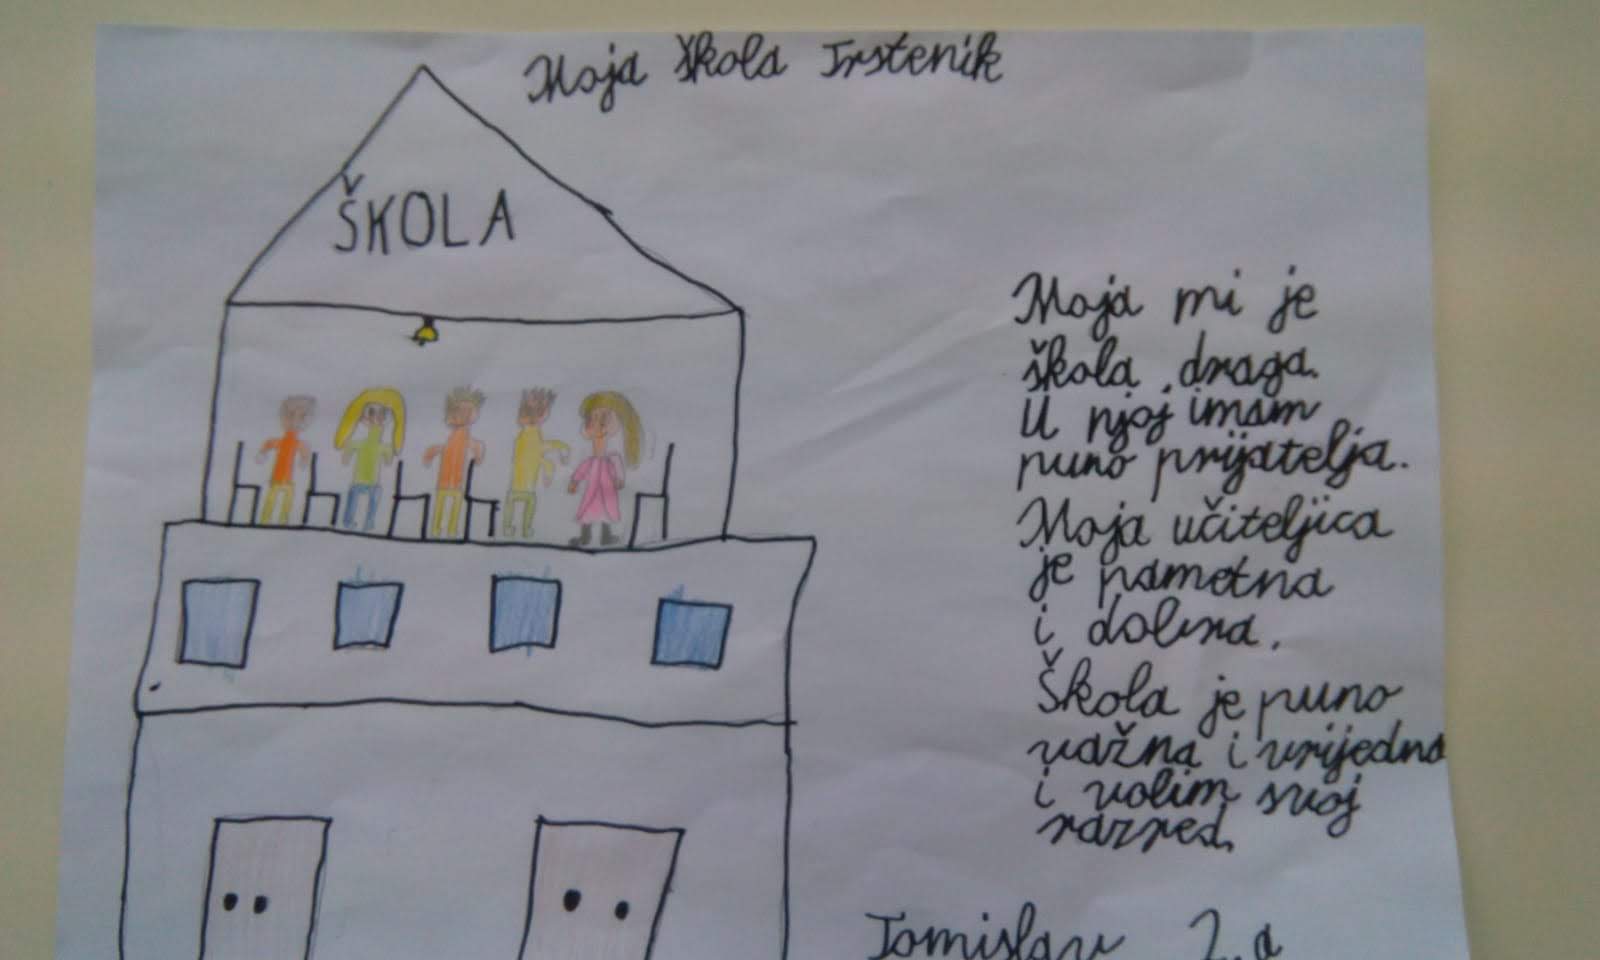 Moja škola Trstenik
ŠKOLA
Moja mi je
škola draga.
U njoj imam
puno prijatelja.
Moja učiteljica
je pametna
i dobra.
Škola je puno
važna i vrijedna
i volim svoj
razred.
Tomislav 2.a